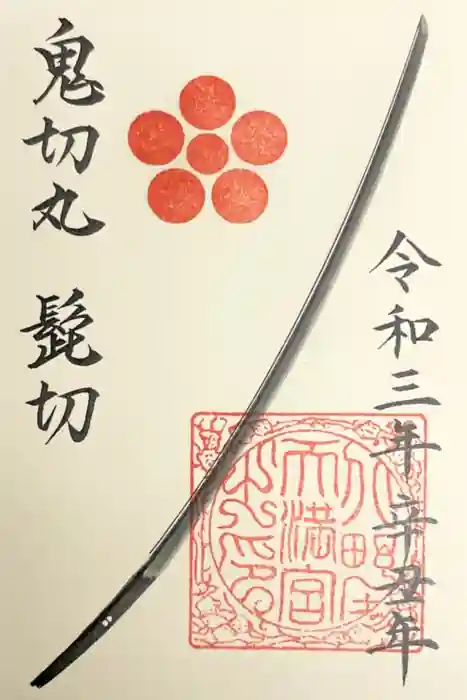 令和三年 辛丑年
北野
天満宮
之印
鬼切丸 髭切